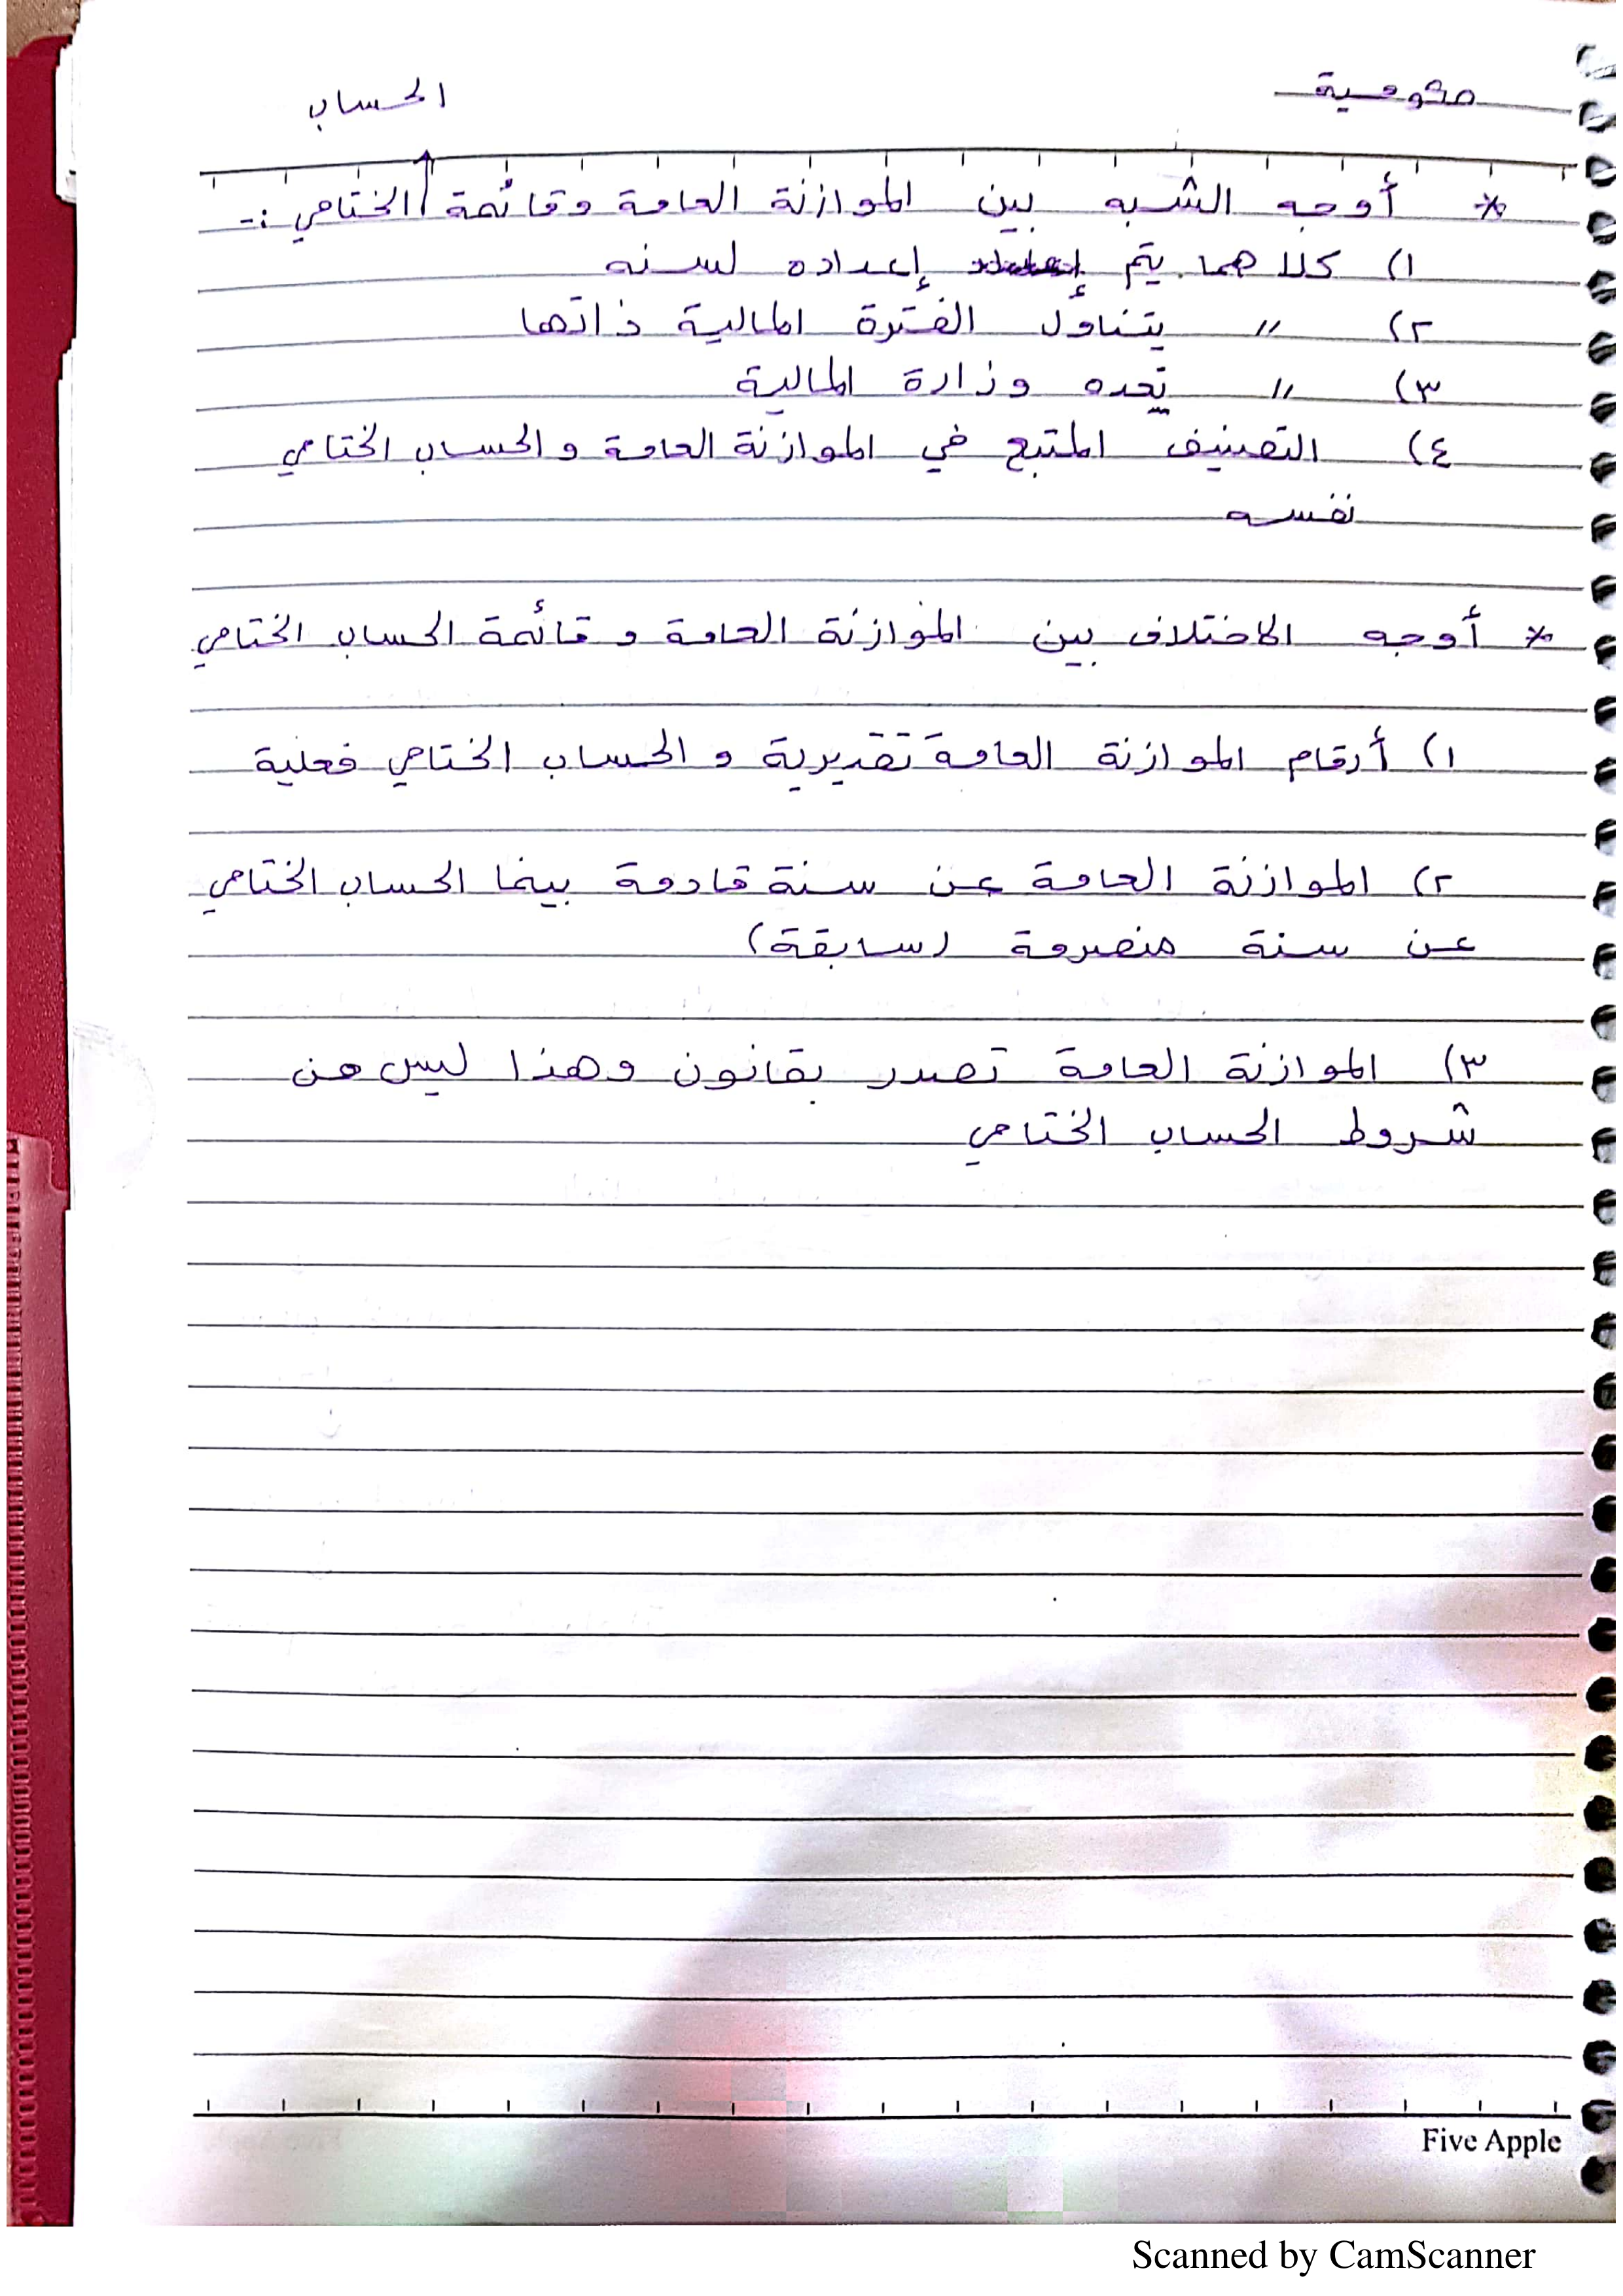 حكومية
الحساب
* أوجه الشبه بين الموازنة العامة وقائمة الختامي :-
١) كلاهما يتم إعداده لسنه
٢) " يتناول الفترة المالية ذاتها
٣) " تعده وزارة المالية
٤) التصنيف المتبع في الموازنة العامة والحساب الختامي
نفسه
* أوجه الاختلاف بين الموازنة العامة وقائمة الحساب الختامي
١) أرقام الموازنة العامة تقديرية والحساب الختامي فعلية
٢) الموازنة العامة عن سنة قادمة بينما الحساب الختامي
عن سنة منصرمة (سابقة)
٣) الموازنة العامة تصدر بقانون وهذا ليس من
شروط الحساب الختامي
Five Apple
Scanned by CamScanner